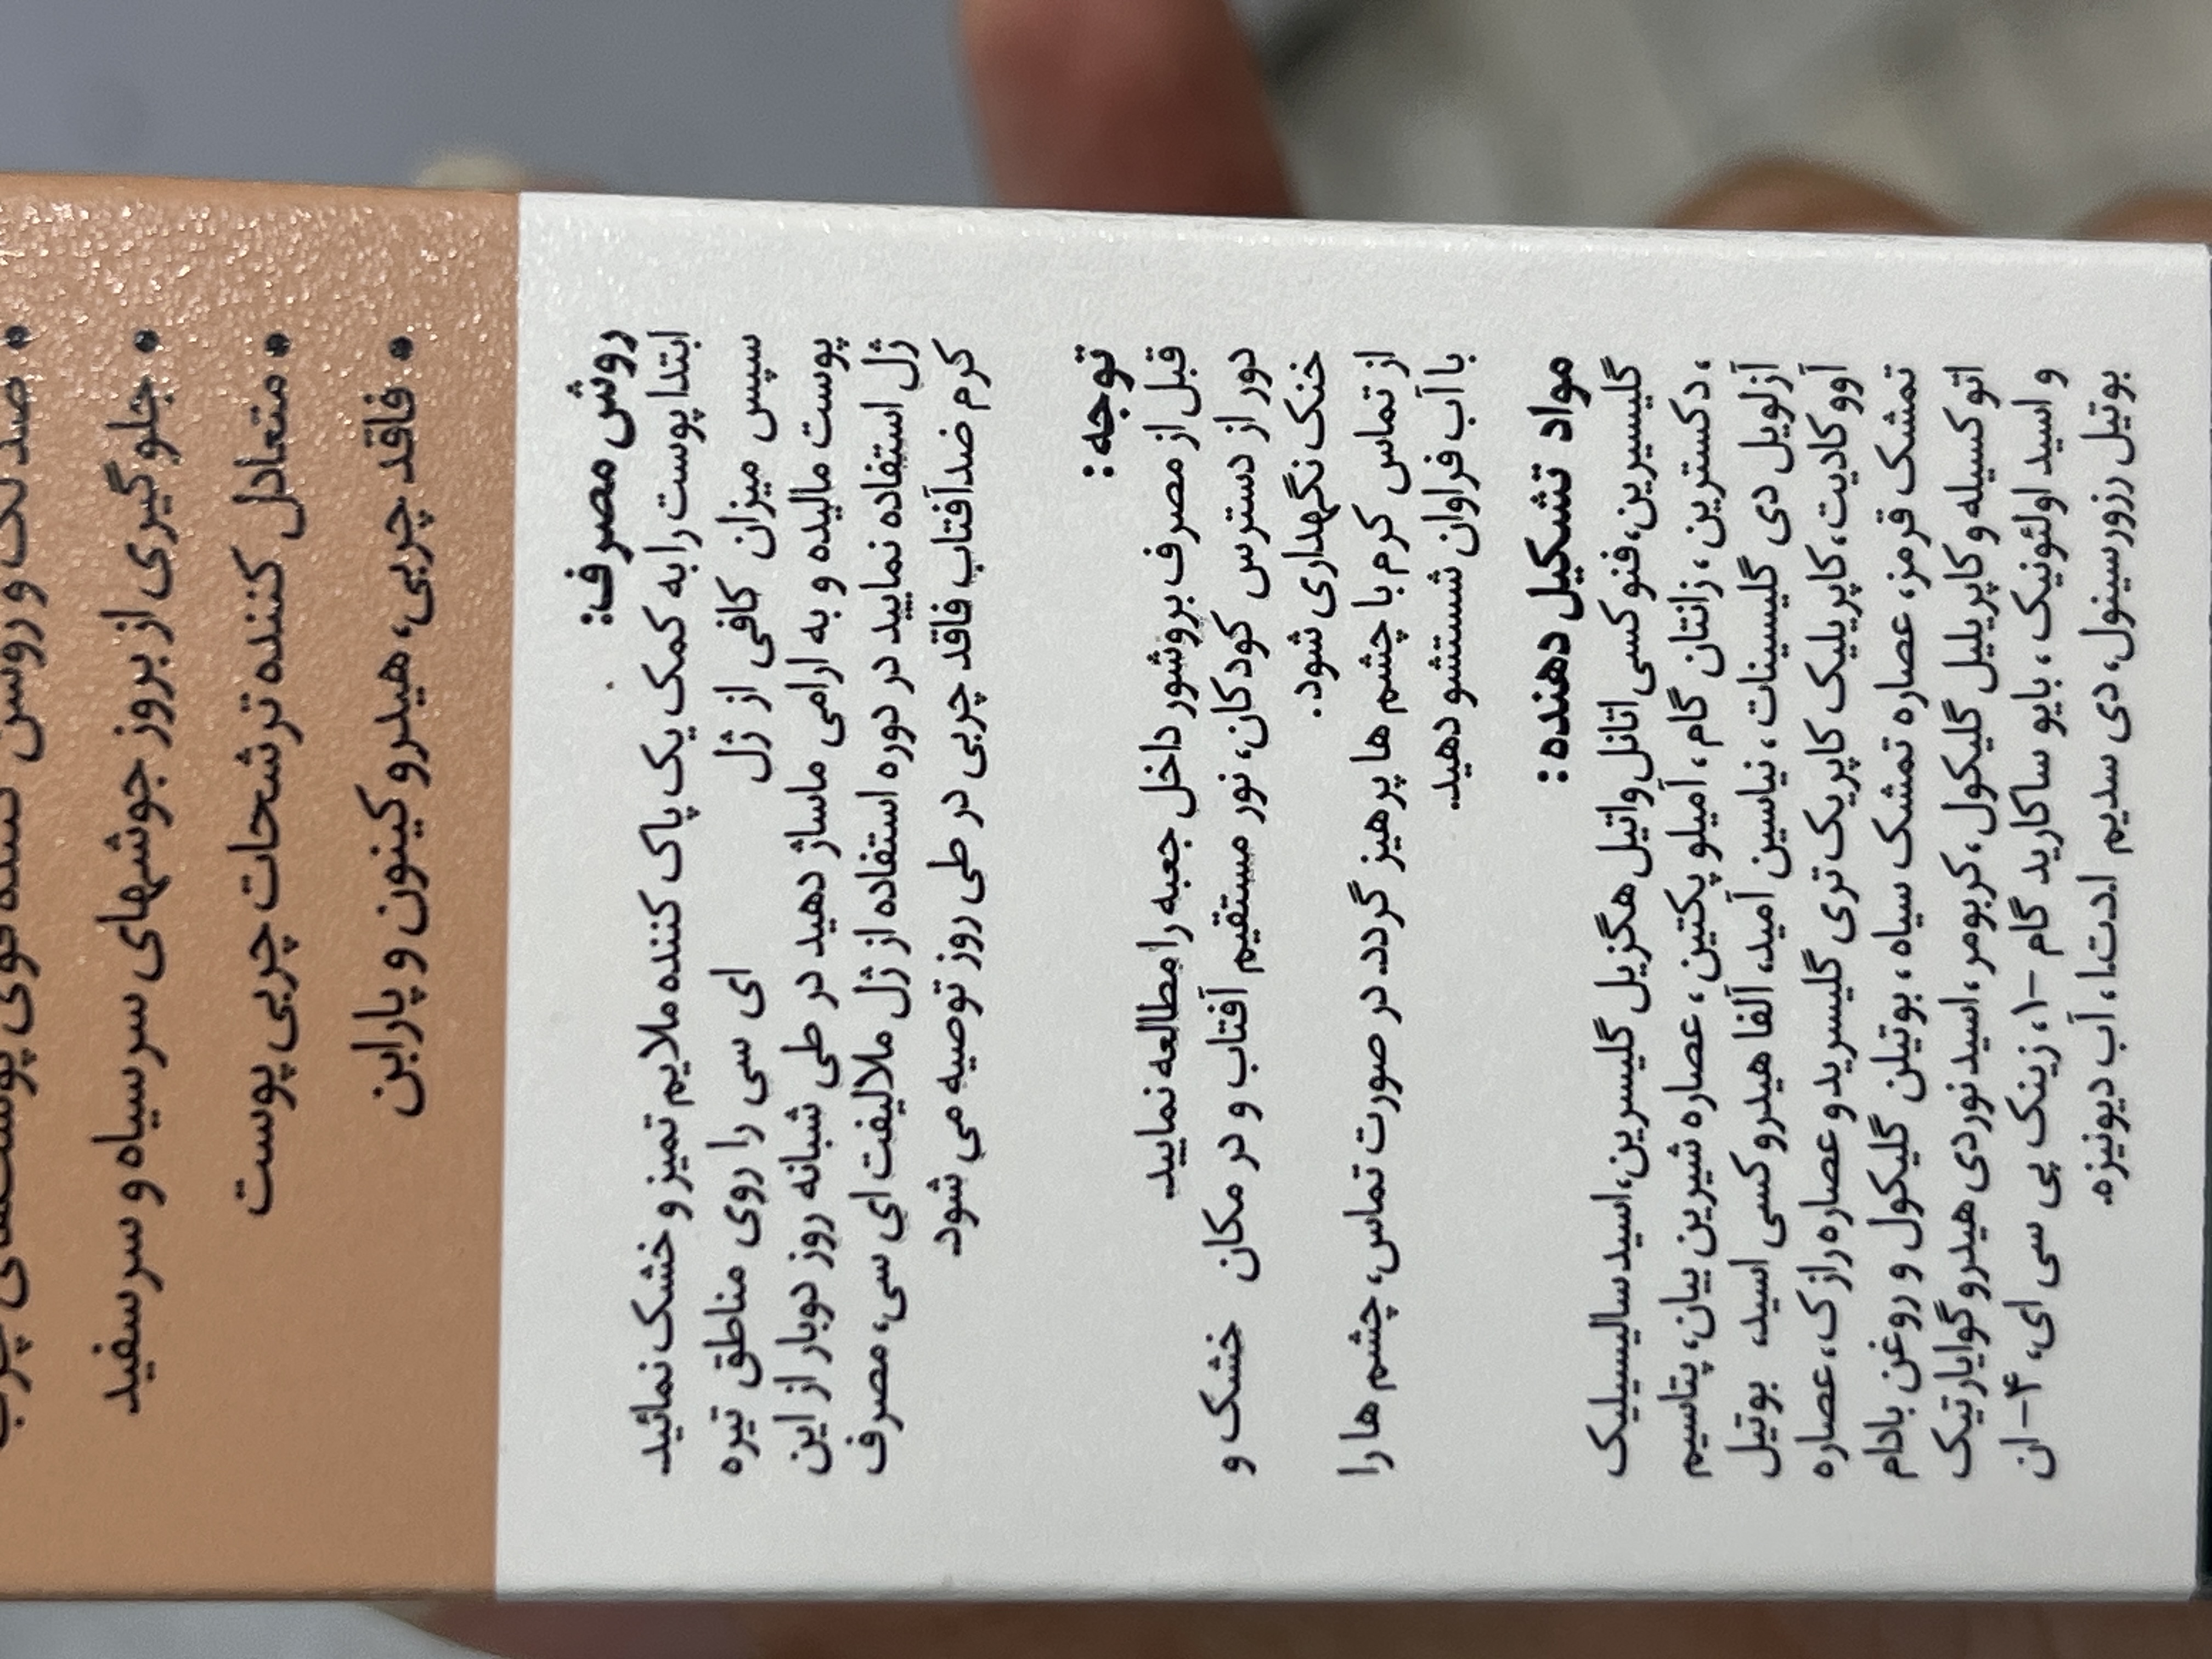 ضد لک و روشن کننده قوی پوست‌های چرب
• جلوگیری از بروز جوشهای سرسیاه و سرسفید
• متعادل کننده ترشحات چربی پوست
• فاقد چربی، هیدروکینون و پارابن
روش مصرف:
ابتدا پوست را به کمک یک پاک کننده ملایم تمیز و خشک نمائید
سپس میزان کافی از ژل ای سی را روی مناطق تیره
پوست مالیده و به ارامی ماساژ دهید در طی شبانه روز دوبار از این
ژل استفاده نمایید در دوره استفاده از ژل ملالیفت ای سی، مصرف
کرم ضدآفتاب فاقد چربی در طی روز توصیه می شود
توجه:
قبل از مصرف بروشور داخل جعبه را مطالعه نمایید
دور از دسترس کودکان، نور مستقیم آفتاب و در مکان خشک و
خنک نگهداری شود.
از تماس کرم با چشم ها پرهیز گردد. در صورت تماس، چشم ها را
با آب فراوان شستشو دهید.
مواد تشکیل دهنده:
گلیسیرین، فنوکسی اتانل واتیل هگزیل گلیسرین، اسید سالیسیلیک
، دکسترین ، زانتان گام ، آمیلو پکتین ، عصاره شیرین بیان، پتاسیم
آزلویل دی گلیسینات ، نیاسین آمید، آلفا هیدروکسی اسید، بوتیل
آووکادیت، کاپریلیک کاپریک تری گلیسرید و عصاره رازک، عصاره
تمشک قرمز، عصاره تمشک سیاه ، بوتیلن گلیکول و روغن بادام
اتوکسیله و کاپریلیل گلیکول، کربومر، اسید نوردی هیدروگوایارتیک
و اسید اولئونیک ، بایو ساکارید گام -۱، زینک پی سی ای، ۴-ان
بوتیل رزورسینول، دی سدیم ا.د.ت.ا ، آب دیونیزه.